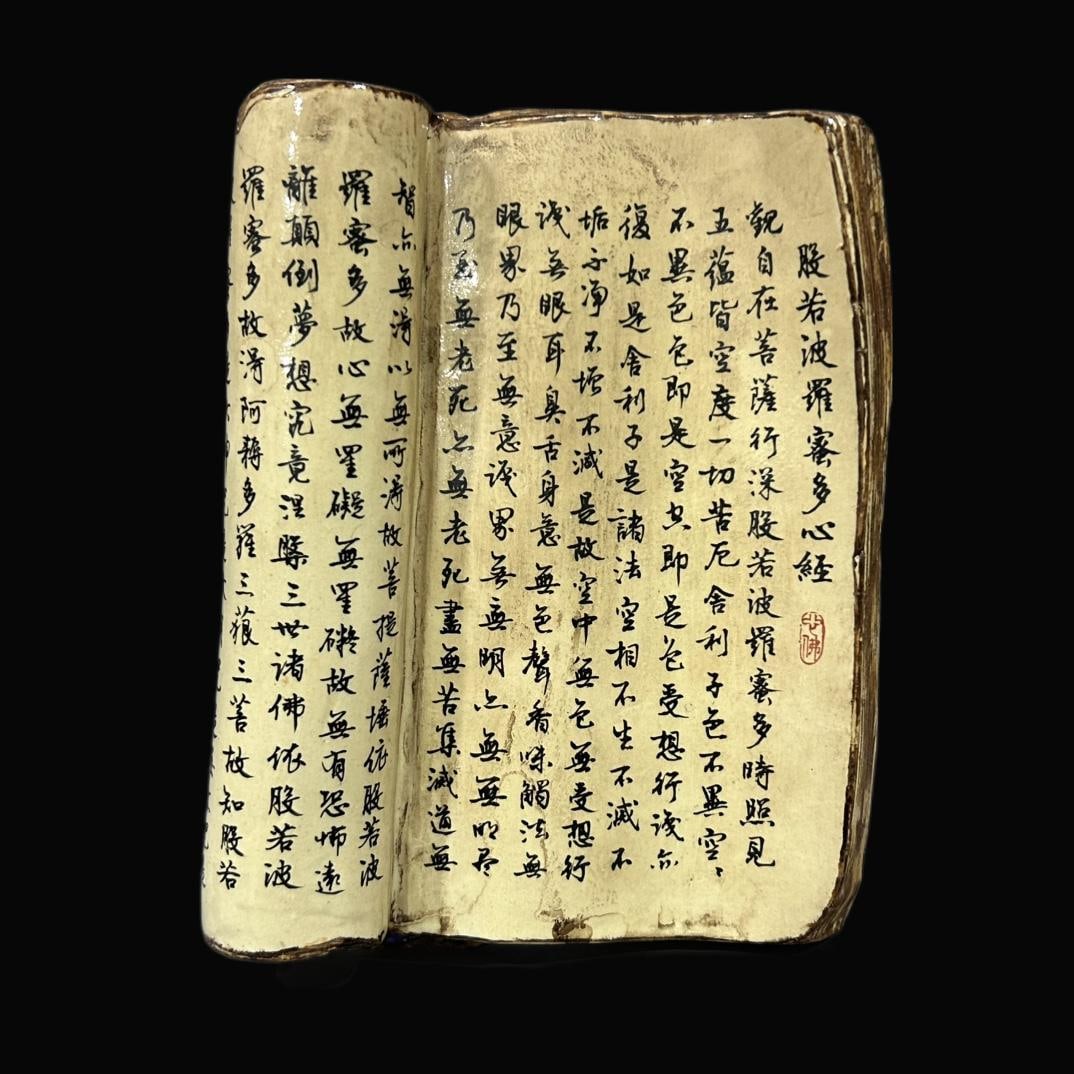 般若波羅蜜多心經
佛
觀自在菩薩行深般若波羅蜜多時照見
五蘊皆空度一切苦厄舍利子色不異空〻
不異色色即是空空即是色受想行識亦
復如是舍利子是諸法空相不生不滅不
垢不淨不增不減是故空中無色無受想行
識無眼耳鼻舌身意無色聲香味觸法無
眼界乃至無意識界無無明亦無無明尽
乃至無老死亦無老死盡無苦集滅道無
智亦無得以無所得故菩提薩埵依般若波
羅蜜多故心無罣礙無罣礙故無有恐怖遠
離顛倒夢想究竟涅槃三世諸佛依般若波
羅蜜多故得阿耨多羅三藐三菩故知般若